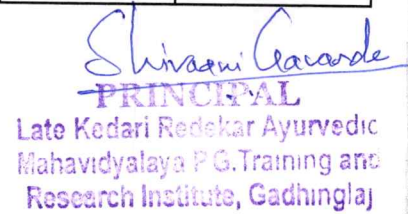 Shivrani Gavande
PRINCIPAL
Late Kedari Redekar Ayurvedic
Mahavidyalaya P.G.Training and
Research Institute, Gadhinglaj